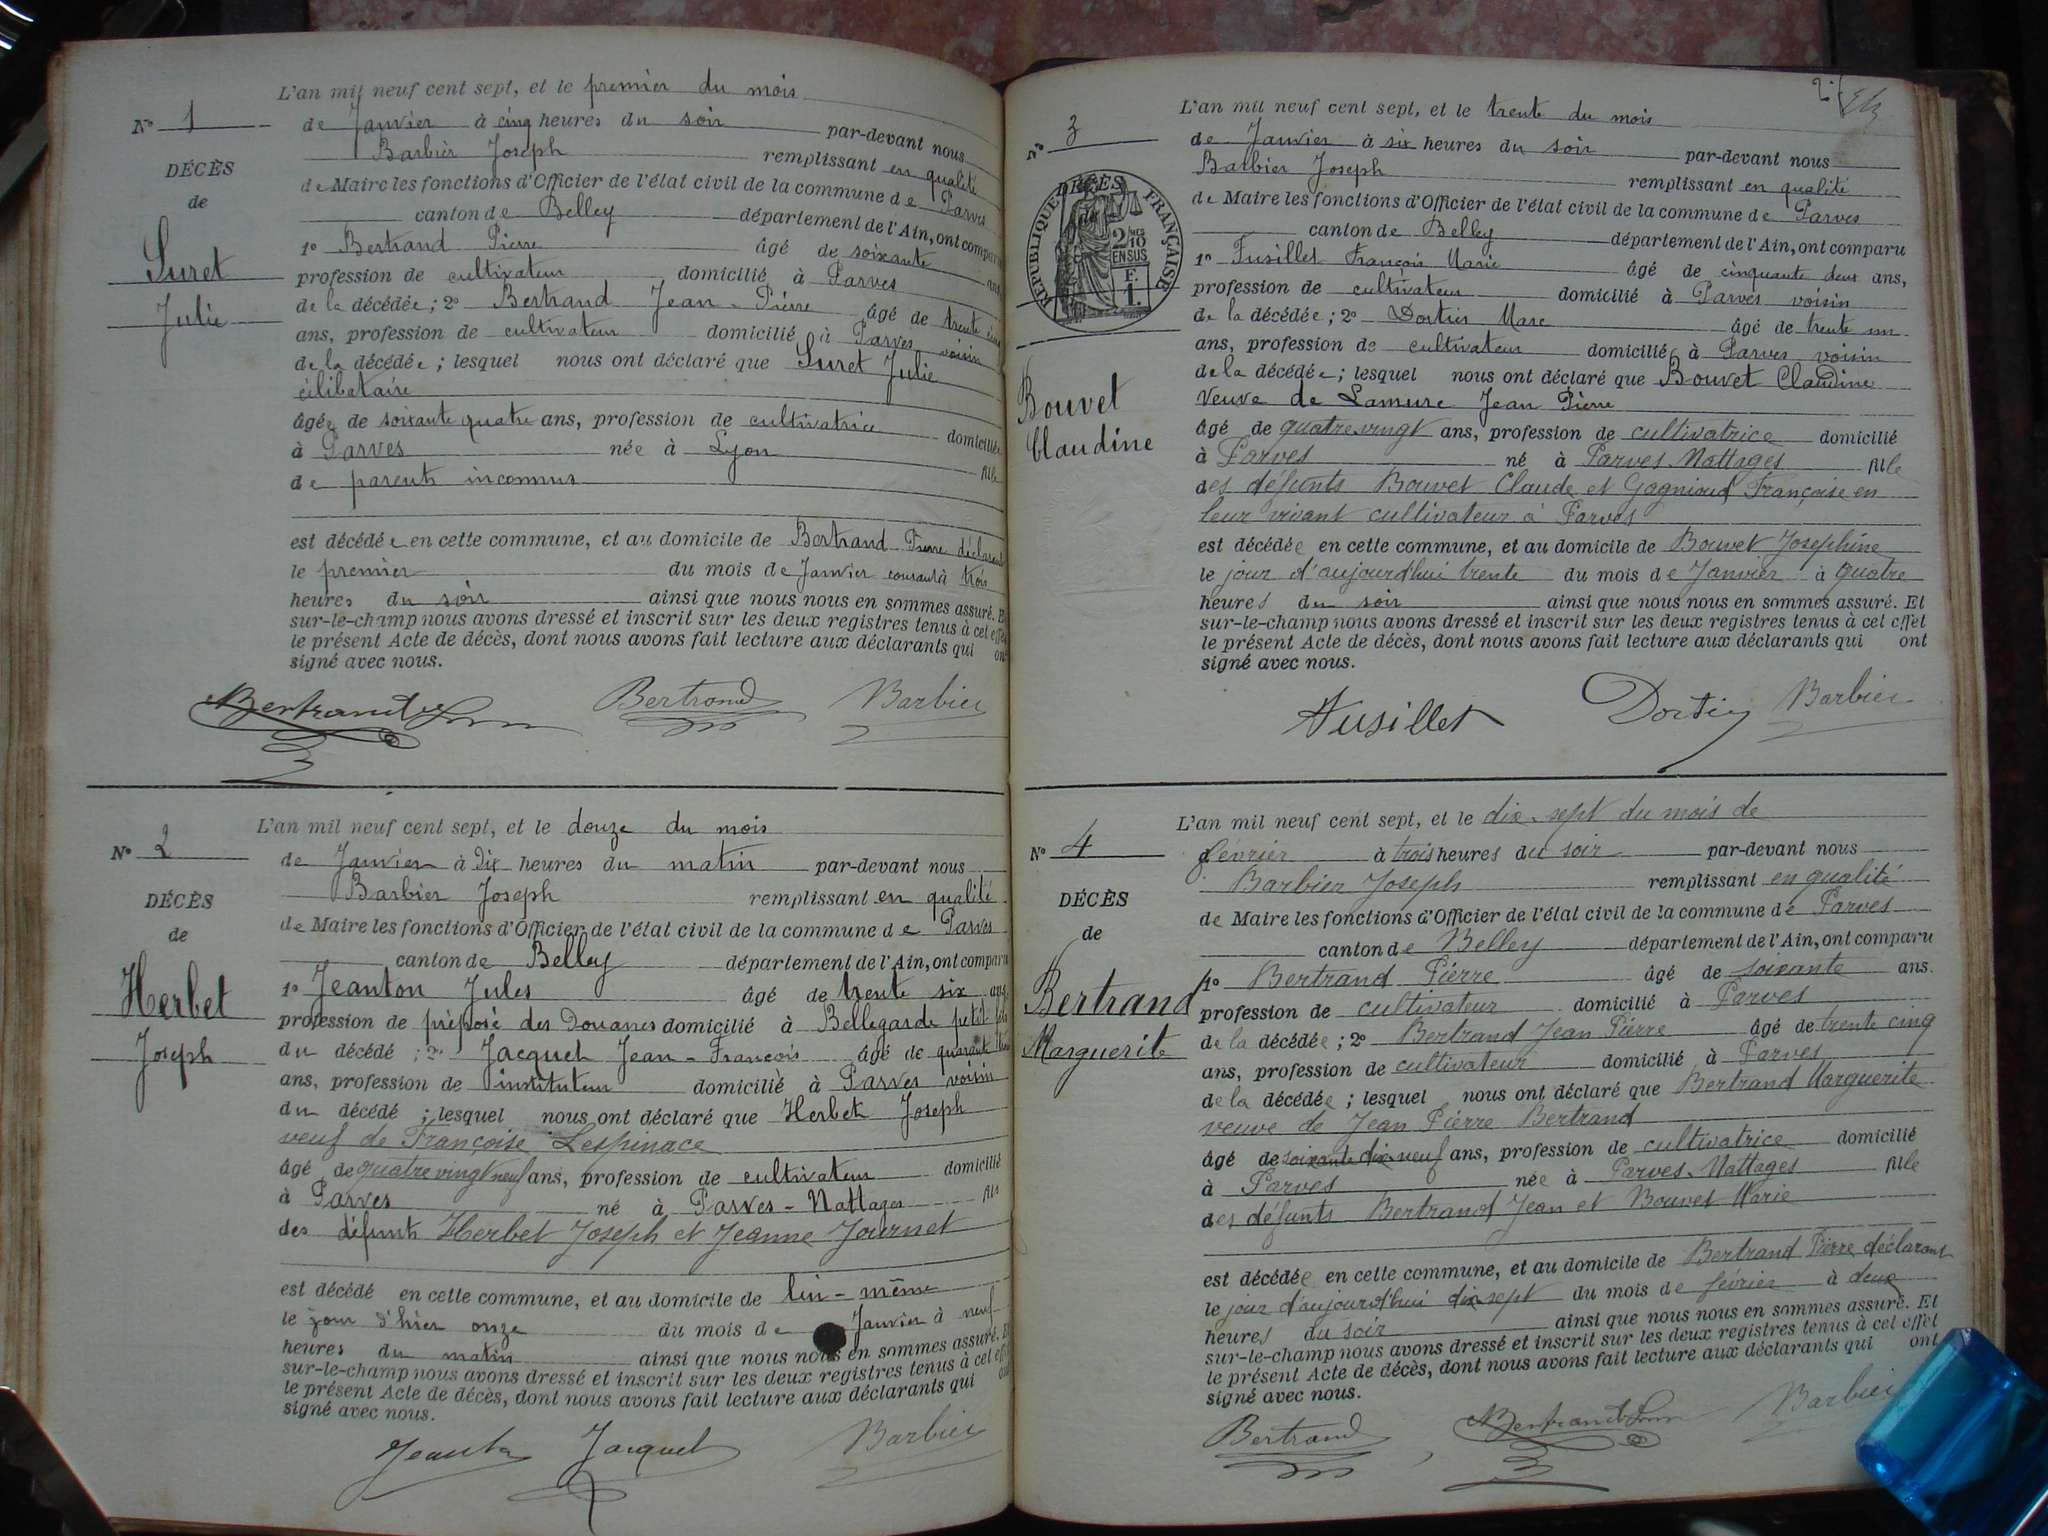 L'an mil neuf cent sept, et le premier du mois
N° 1
de Janvier à cinq heures du soir par-devant nous
Barbier Joseph remplissant en qualité
DÉCÈS
de Maire les fonctions d'Officier de l'état civil de la commune de Parves
de
canton de Belley département de l'Ain, ont comparu
1° Bertrand Pierre âgé de soixante ans
Suret
profession de cultivateur domicilié à Parves
Julie
de la décédée ; 2° Bertrand Jean-Pierre âgé de trente cinq
ans, profession de cultivateur domicilié à Parves voisin
de la décédée ; lesquel nous ont déclaré que Suret Julie
célibataire
âgée de soixante quatre ans, profession de cultivatrice domiciliée
à Parves née à Lyon fille
de parents inconnus
est décédée en cette commune, et au domicile de Bertrand Pierre déclarant
le premier du mois de Janvier courant à trois
heures du soir ainsi que nous nous en sommes assuré. Et
sur-le-champ nous avons dressé et inscrit sur les deux registres tenus à cet effet
le présent Acte de décès, dont nous avons fait lecture aux déclarants qui ont
signé avec nous.
Bertrand Bertrand Barbier
L'an mil neuf cent sept, et le douze du mois
N° 2
de Janvier à Dix heures du matin par-devant nous
Barbier Joseph remplissant en qualité
DÉCÈS
de Maire les fonctions d'Officier de l'état civil de la commune de Parves
de
canton de Belley département de l'Ain, ont comparu
Herbet
1° Jeanton Jules âgé de trente six ans,
profession de préposé des Douanes domicilié à Bellegarde petit fils
Joseph
du décédé ; 2° Jacquet Jean-François âgé de quarante
ans, profession de instituteur domicilié à Parves voisin
du décédé ; lesquel nous ont déclaré que Herbet Joseph
veuf de Françoise Lespinace
âgé de quatre vingt neuf ans, profession de cultivateur domicilié
à Parves né à Parves-Nattages fils
des défunts Herbet Joseph et Jeanne Journet
est décédé en cette commune, et au domicile de lui-même
le jour d'hier onze du mois de Janvier à neuf
heures du matin ainsi que nous nous en sommes assuré. Et
sur-le-champ nous avons dressé et inscrit sur les deux registres tenus à cet effet
le présent Acte de décès, dont nous avons fait lecture aux déclarants qui ont
signé avec nous.
Jeanton Jacquet Barbier
2
L'an mil neuf cent sept, et le trente du mois
N° 3
de Janvier à six heures du soir par-devant nous
Barbier Joseph remplissant en qualité
DÉCÈS
de
RÉPUBLIQUE FRANÇAISE
2 MES
10
EN SUS
F.
1.
de Maire les fonctions d'Officier de l'état civil de la commune de Parves
canton de Belley département de l'Ain, ont comparu
1° Fusillet François Marie âgé de cinquante deux ans,
profession de cultivateur domicilié à Parves voisin
de la décédée ; 2° Dortier Marc âgé de trente un
ans, profession de cultivateur domicilié à Parves voisin
de la décédée ; lesquel nous ont déclaré que Bouvet Claudine
Bouvet
Claudine
Veuve de Lamure Jean Pierre
âgé de quatre vingt ans, profession de cultivatrice domicilié
à Parves né à Parves Nattages fille
des défunts Bouvet Claude et Gagnioud Françoise en
leur vivant cultivateur à Parves
est décédée en cette commune, et au domicile de Bouvet Joséphine
le jour d'aujourd'hui trente du mois de Janvier à quatre
heures du soir ainsi que nous nous en sommes assuré. Et
sur-le-champ nous avons dressé et inscrit sur les deux registres tenus à cet effet
le présent Acte de décès, dont nous avons fait lecture aux déclarants qui ont
signé avec nous.
Fusillet Dortier Barbier
L'an mil neuf cent sept, et le dix-sept du mois de
N° 4
février à trois heures du soir par-devant nous
Barbier Joseph remplissant en qualité
DÉCÈS
de Maire les fonctions d'Officier de l'état civil de la commune de Parves
de
canton de Belley département de l'Ain, ont comparu
Bertrand
1° Bertrand Pierre âgé de soixante ans.
profession de cultivateur domicilié à Parves
Marguerite
de la décédée ; 2° Bertrand Jean Pierre âgé de trente cinq
ans, profession de cultivateur domicilié à Parves
de la décédée ; lesquel nous ont déclaré que Bertrand Marguerite
veuve de Jean Pierre Bertrand
âgé de soixante dix neuf ans, profession de cultivatrice domicilié
à Parves née à Parves-Nattages fille
des défunts Bertrand Jean et Bouvet Marie
est décédée en cette commune, et au domicile de Bertrand Pierre déclarant
le jour d'aujourd'hui dix sept du mois de février à deux
heures du soir ainsi que nous nous en sommes assuré. Et
sur-le-champ nous avons dressé et inscrit sur les deux registres tenus à cet effet
le présent Acte de décès, dont nous avons fait lecture aux déclarants qui ont
signé avec nous.
Bertrand Bertrand Barbier